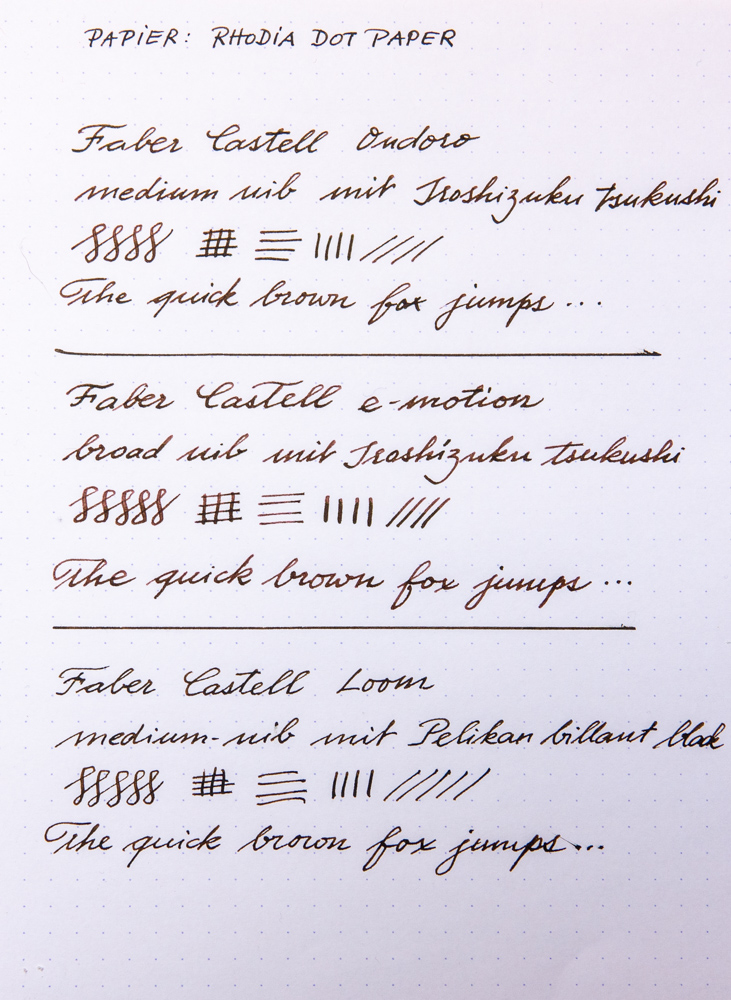 PAPIER: RHODIA DOT PAPER
Faber Castell Ondoro
medium nib mit Iroshizuku tsukushi
The quick brown fox jumps ...
Faber Castell e-motion
broad nib mit Iroshizuku tsukushi
The quick brown fox jumps ...
Faber Castell Loom
medium-nib mit Pelikan billant black
The quick brown fox jumps ...